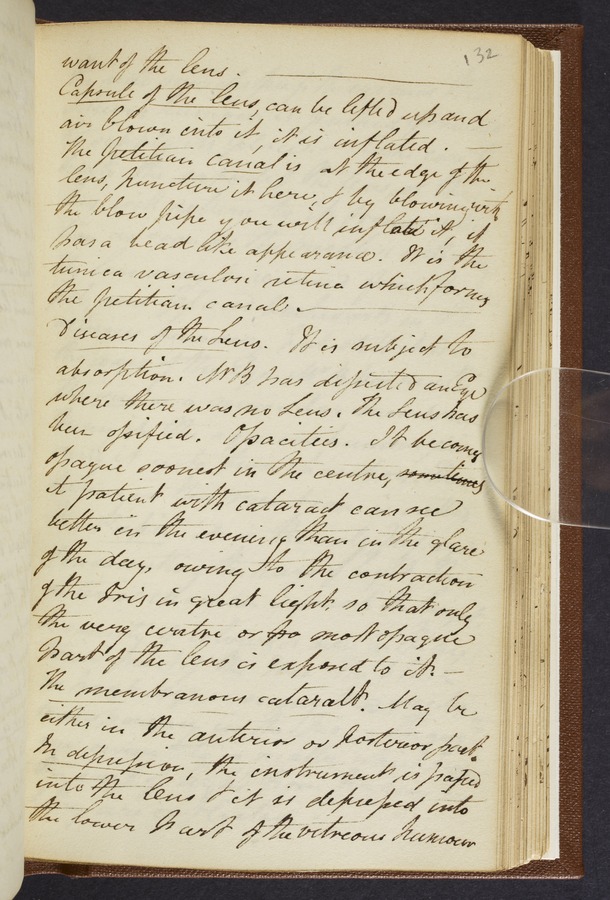 132
want of the lens.
Capsule of the lens, can be lifted up and
air blown into it, it is inflated. —
The petitian canal is at the edge of the
lens, puncture it here, & by blowing with
the blow pipe you will inflate it, it
has a bead like appearance. It is the
tunica vasculosi retina which forms
the petitian canal —
Diseases of the Lens. It is subject to
absorption. Mr B has dissected an Eye
where there was no Lens. The Lens has
been ossified. Opacities. It becomes
opaque soonest in the centre, sometimes
A patient with cataract can see
better in the evening than in the glare
of the day, owing to the contraction
of the Iris in great light so that only
the very centre or most opaque
part of the lens is exposed to it. —
The membranous cataralt. May be
either in the anterior or posterior part.
In depression, the instrument is passed
into the lens & it is depressed into
the lower part of the vitreous humour